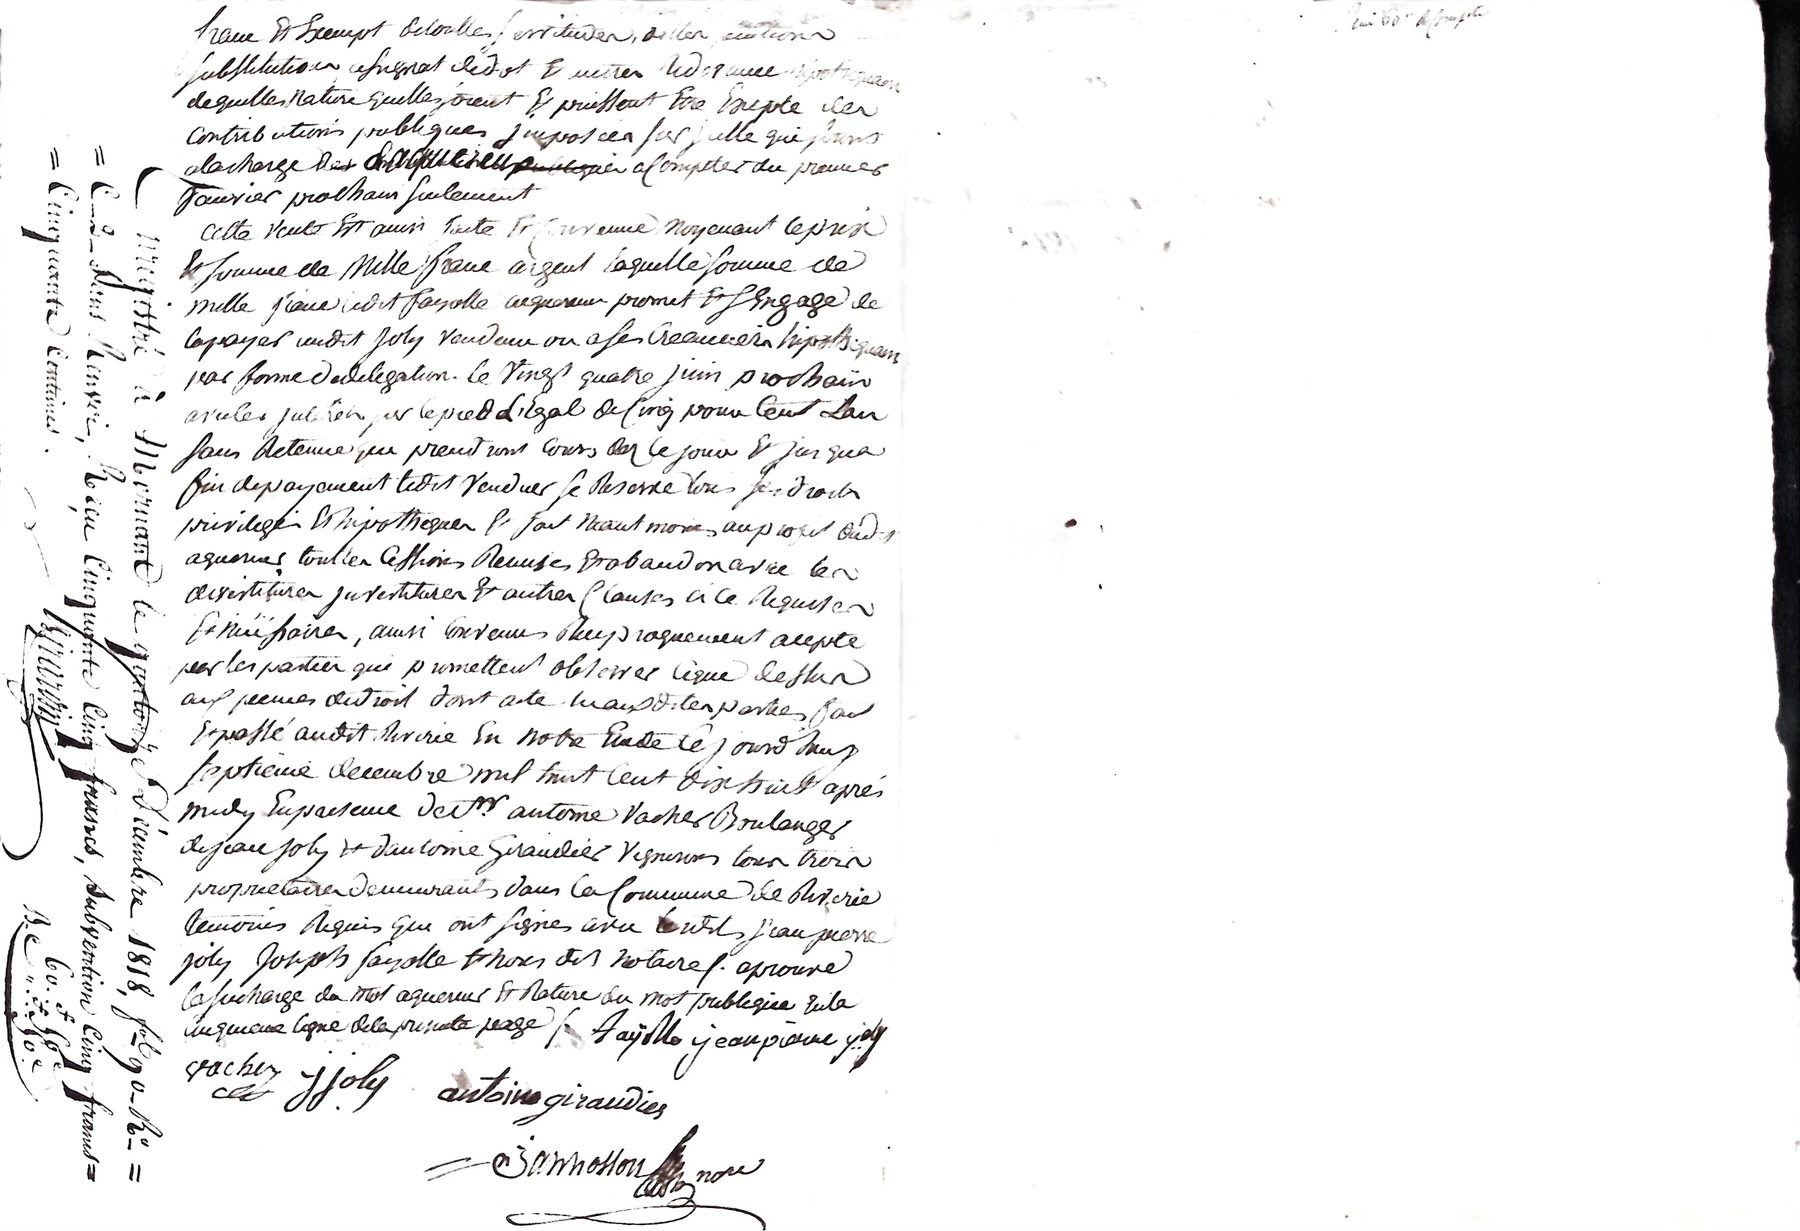 franc Et Exempt de touttes servitudes, dettes, pentions
substitution assignat de dot Et autres Redevance hipothequaire
de quelles Nature quelles soient Et puissent Etre Exepte des
contributions publiques imposées sur jcelle qui seront
a la charge de acompter du premier
Janvier prochain seulement
cette vente Est ainsi faite Et Convenue Moyenant le prix
Et somme de Mille franc argent laquelle somme de
mille franc ledit fayolle aquereur promet Et sEngage de
la payer audit joly Vendeur ou a ses Creanciers hipothequaire
par forme de delegation le Vingt quatre juin prochain
avec les sur le pied Légal de Cinq pour Cent L'an
sans Retenue qui prendront Cours des Ce jour Et jusqua
fin de payement ledit Vendeur se Reserve tous ses droits
privileges Et hipotheques Et fait Neantmoins au profit dudit
aquereur touttes Cessions Remises Et abandon avec les
devestitures investitures Et autres Clauses a Ce Requises
Et Nécéssaires, ainsi Convenus Reciproquement acepté
par les parties qui promettent observer Ceque dessus
aux peines de droit dont acte auxdites parties fait
Et passé audit Riverie En notre Etude Cejourdhuy
septieme decembre mil huit Cent dix huit après
midy En presence de Srs antoine Vacher Boulanger
de jean Joly Et d'antoine Giraudier Vignerons tous trois
proprietaires demeurants dans la Commune de Riverie
temoins Requis qui ont signés avec lesdits jean pierre
joly Joseph fayolle Et nous dit notaire /. aprouvé
la surcharge du Mot aquereur Et Rature du mot publique
cinquieme ligne de la presente page /. Fayolle jean pierre joly
vacher j joly antoine giraudier
= Jannosson nore
Enregistré à Mornant le quatorze Décembre 1818, fol. 90 Ro =
= C. 2. dans Renvoi, Reçu Cinquante Cinq francs, subvention Cinq francs =
= Cinquante Centimes.
60. f 50 c